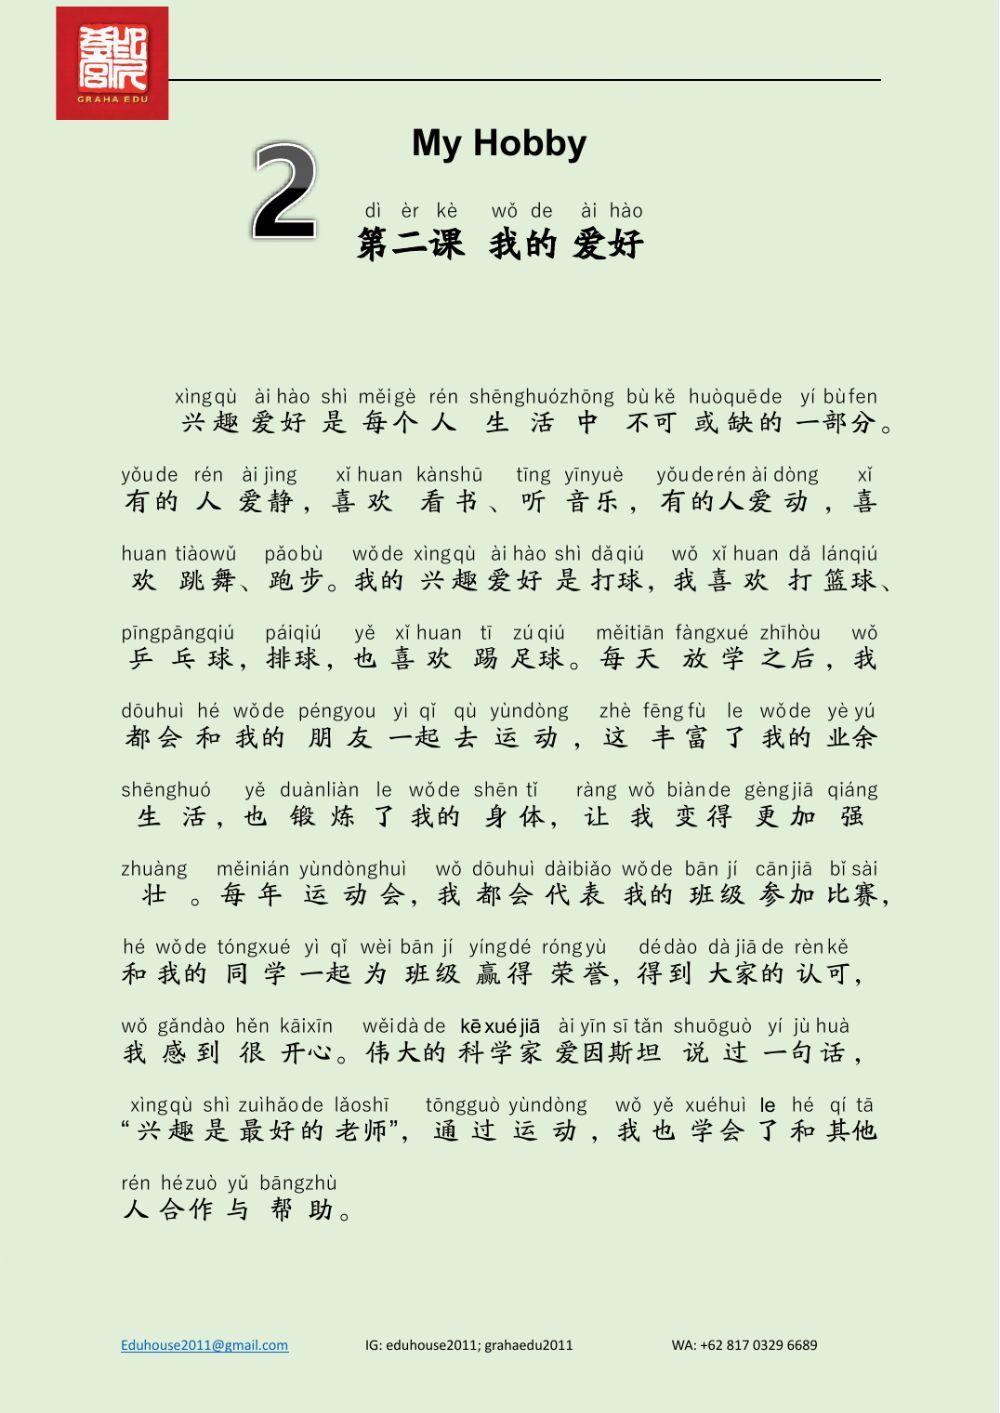 GRAHA EDU
My Hobby
2
dì èr kè wǒ de ài hào
第二课 我的爱好
xìngqù ài hào shì měigè rén shēnghuózhōng bù kě huòquēde yí bùfen
兴趣爱好是每个人生活中不可或缺的一部分。
yǒude rén ài jìng xǐ huan kànshū tīng yīnyuè yǒuderén ài dòng xǐ
有的人爱静，喜欢看书、听音乐，有的人爱动，喜
huan tiàowǔ pǎobù wǒde xìngqù ài hào shì dǎqiú wǒ xǐ huan dǎ lánqiú
欢跳舞、跑步。我的兴趣爱好是打球，我喜欢打篮球、
pīngpāngqiú páiqiú yě xǐ huan tī zúqiú měitiān fàngxué zhīhòu wǒ
乒乓球，排球，也喜欢踢足球。每天放学之后，我
dōuhuì hé wǒde péngyou yì qǐ qù yùndòng zhè fēngfù le wǒde yè yú
都会和我的朋友一起去运动，这丰富了我的业余
shēnghuó yě duànliàn le wǒde shēn tǐ ràng wǒ biànde gèngjiā qiáng
生活，也锻炼了我的身体，让我变得更加强
zhuàng měinián yùndònghuì wǒ dōuhuì dàibiǎo wǒde bān jí cānjiā bǐ sài
壮。每年运动会，我都会代表我的班级参加比赛，
hé wǒde tóngxué yì qǐ wèi bān jí yíngdé róngyù dédào dà jiā de rènkě
和我的同学一起为班级赢得荣誉，得到大家的认可，
wǒ gǎndào hěn kāixīn wěidà de kē xué jiā ài yīn sī tǎn shuōguò yí jù huà
我感到很开心。伟大的科学家爱因斯坦说过一句话，
xìngqù shì zuìhǎode lǎoshī tōngguò yùndòng wǒ yě xuéhuì le hé qí tā
“兴趣是最好的老师”，通过运动，我也学会了和其他
rén hézuò yǔ bāngzhù
人合作与帮助。
Eduhouse2011@gmail.com IG: eduhouse2011; grahaedu2011 WA: +62 817 0329 6689